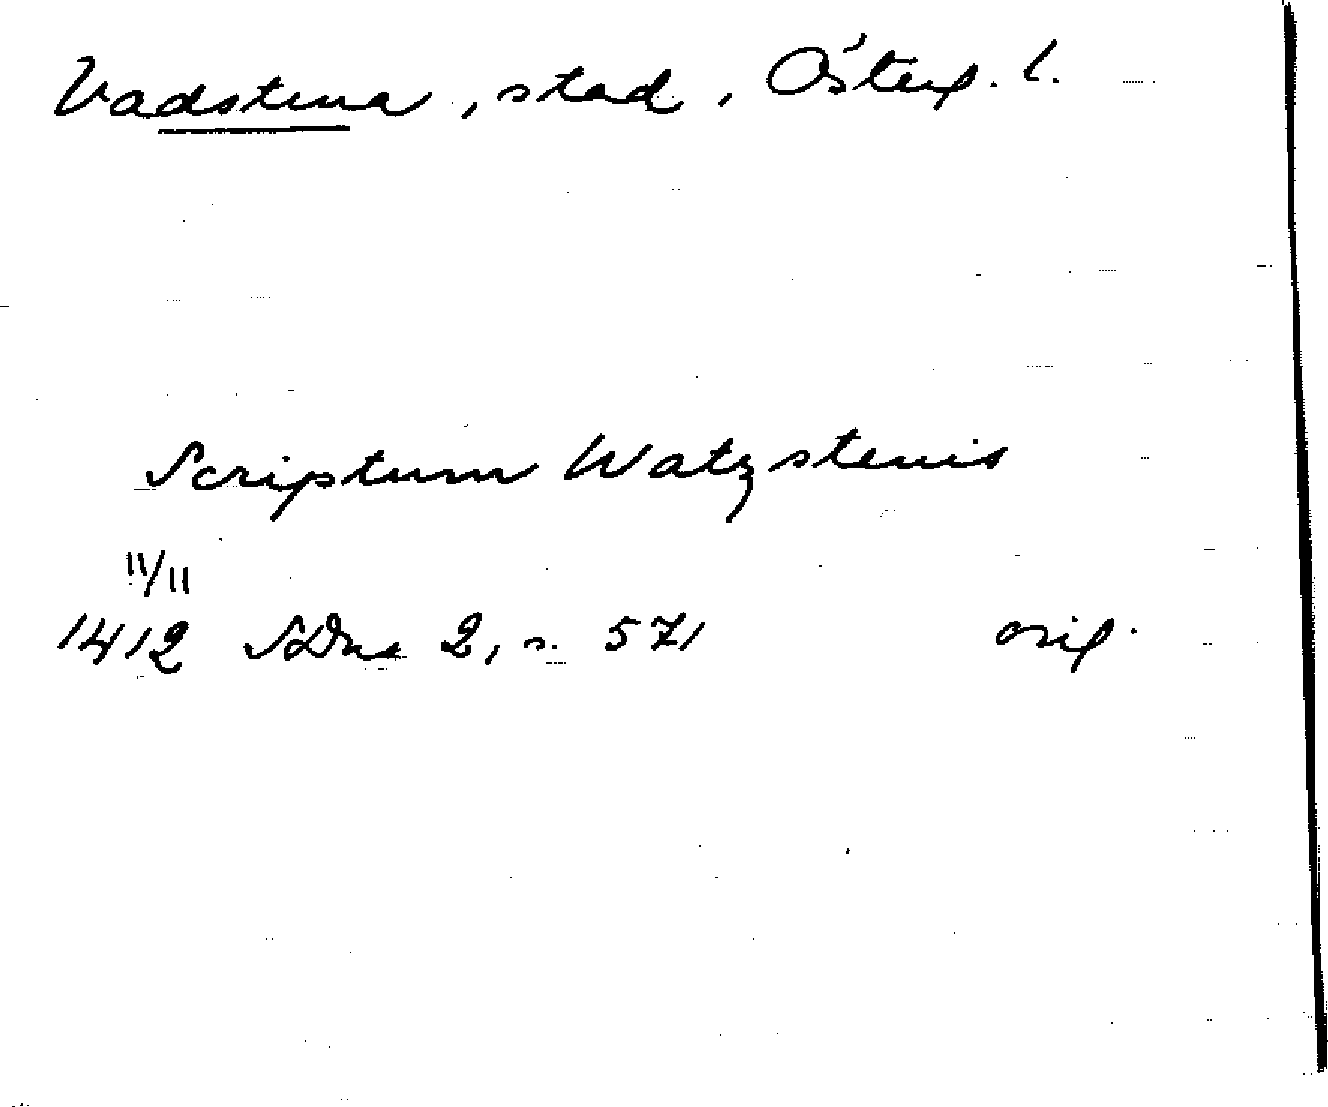 Vadstena, stad, Österg. l.
Scriptum Watzstenis
11/11
1412 SDns 2, s. 571 orig.